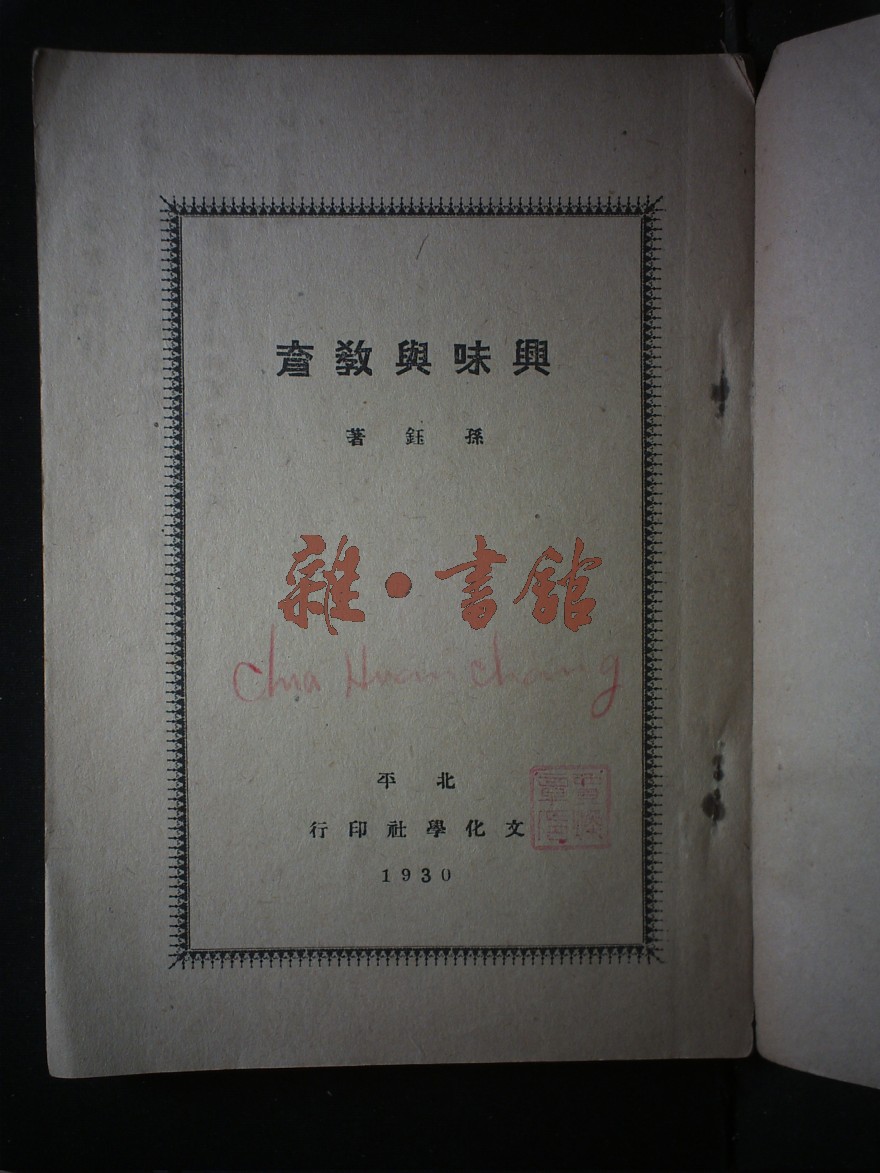 興味與教育
孫鈺著
雜•書館
Chia Huan chang
北平
文化學社印行
1930